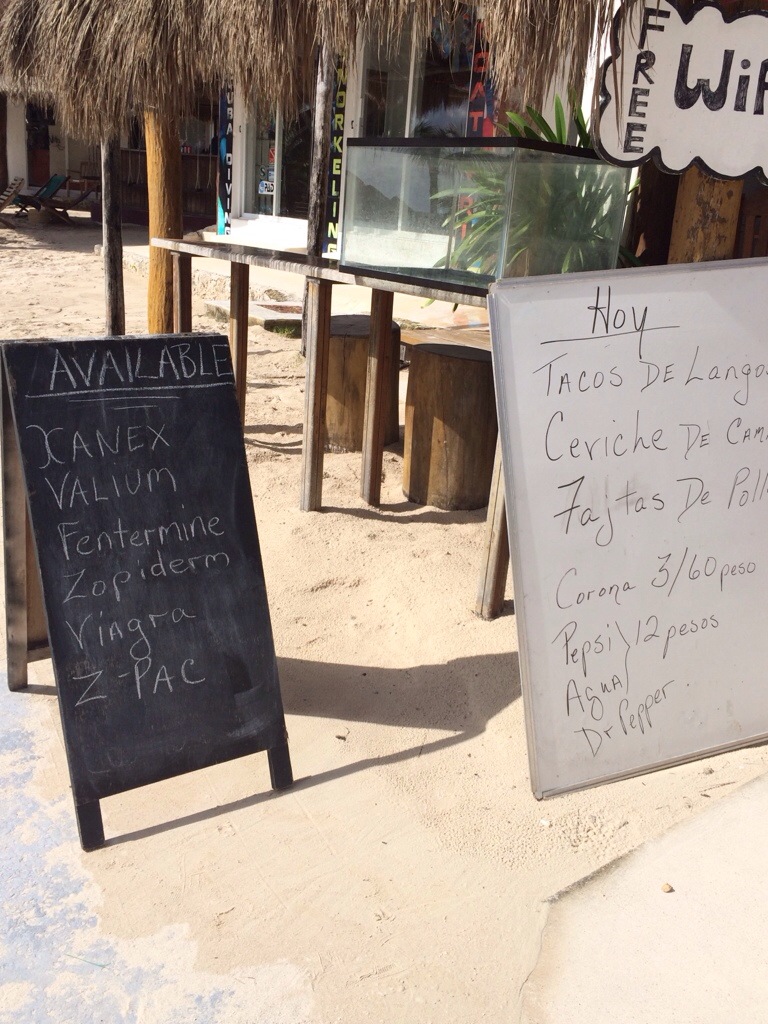 FREE
WiF
NORKELING
URA DIVIN
OAT
AVAILABLE
XANEX
VALIUM
Fentermine
Zopiderm
Viagra
Z-PAC
Hoy
TACOS DE Lango
Ceviche DE CAM
Fajtas De Poll
Corona 3/60 peso
Pepsi } 12 pesos
Agua
Dr Pepper